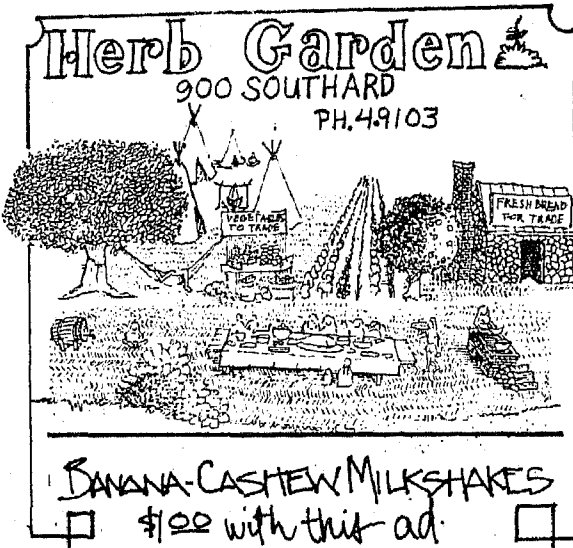 Herb Garden
900 SOUTHARD
PH. 4.9103
VEGETABLES
TO TRADE
FRESH BREAD
FOR TRADE
BANANA-CASHEW MILKSHAKES
$1.00 with this ad.